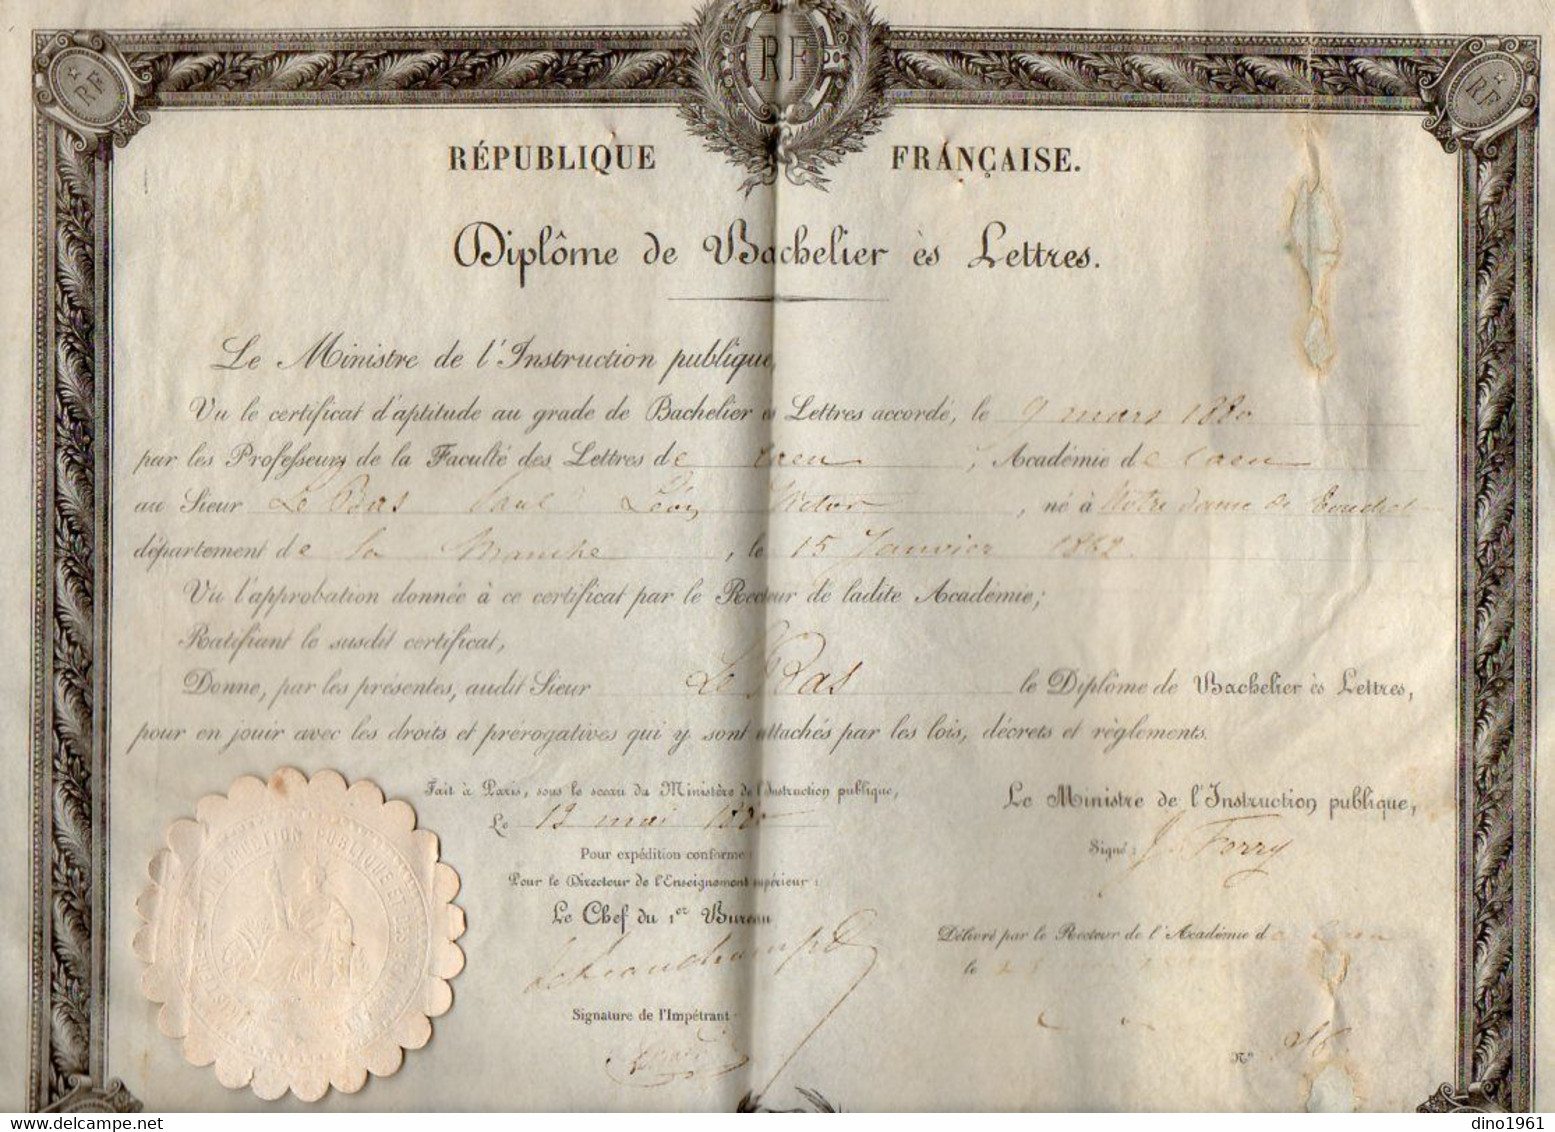 RF
RF
RF
RÉPUBLIQUE FRANÇAISE.
Diplôme de Bachelier ès Lettres.
Le Ministre de l'Instruction publique,
Vu le certificat d'aptitude au grade de Bachelier ès Lettres accordé, le 9 mars 1880
par les Professeurs de la Faculté des Lettres de Caen, Académie de Caen
au Sieur Le Bas Paul Léon Victor, né à Notre Dame de
département de la Manche, le 15 Janvier 1862.
Vu l'approbation donnée à ce certificat par le Recteur de ladite Académie;
Ratifiant le susdit certificat,
Donne, par les présentes, audit Sieur Le Bas le Diplôme de Bachelier ès Lettres,
pour en jouir avec les droits et prérogatives qui y sont attachés par les lois, décrets et règlements.
Fait à Paris, sous le sceau du Ministère de l'Instruction publique,
Le 12 mai 1880
Pour expédition conforme:
Pour le Directeur de l'Enseignement supérieur:
Le Chef du 1er Bureau
Signature de l'Impétrant
Le Ministre de l'Instruction publique,
Signé: J. Ferry
Délivré par le Recteur de l'Académie de Caen
le
N°
INSTRUCTION PUBLIQUE ET DES
dino1961